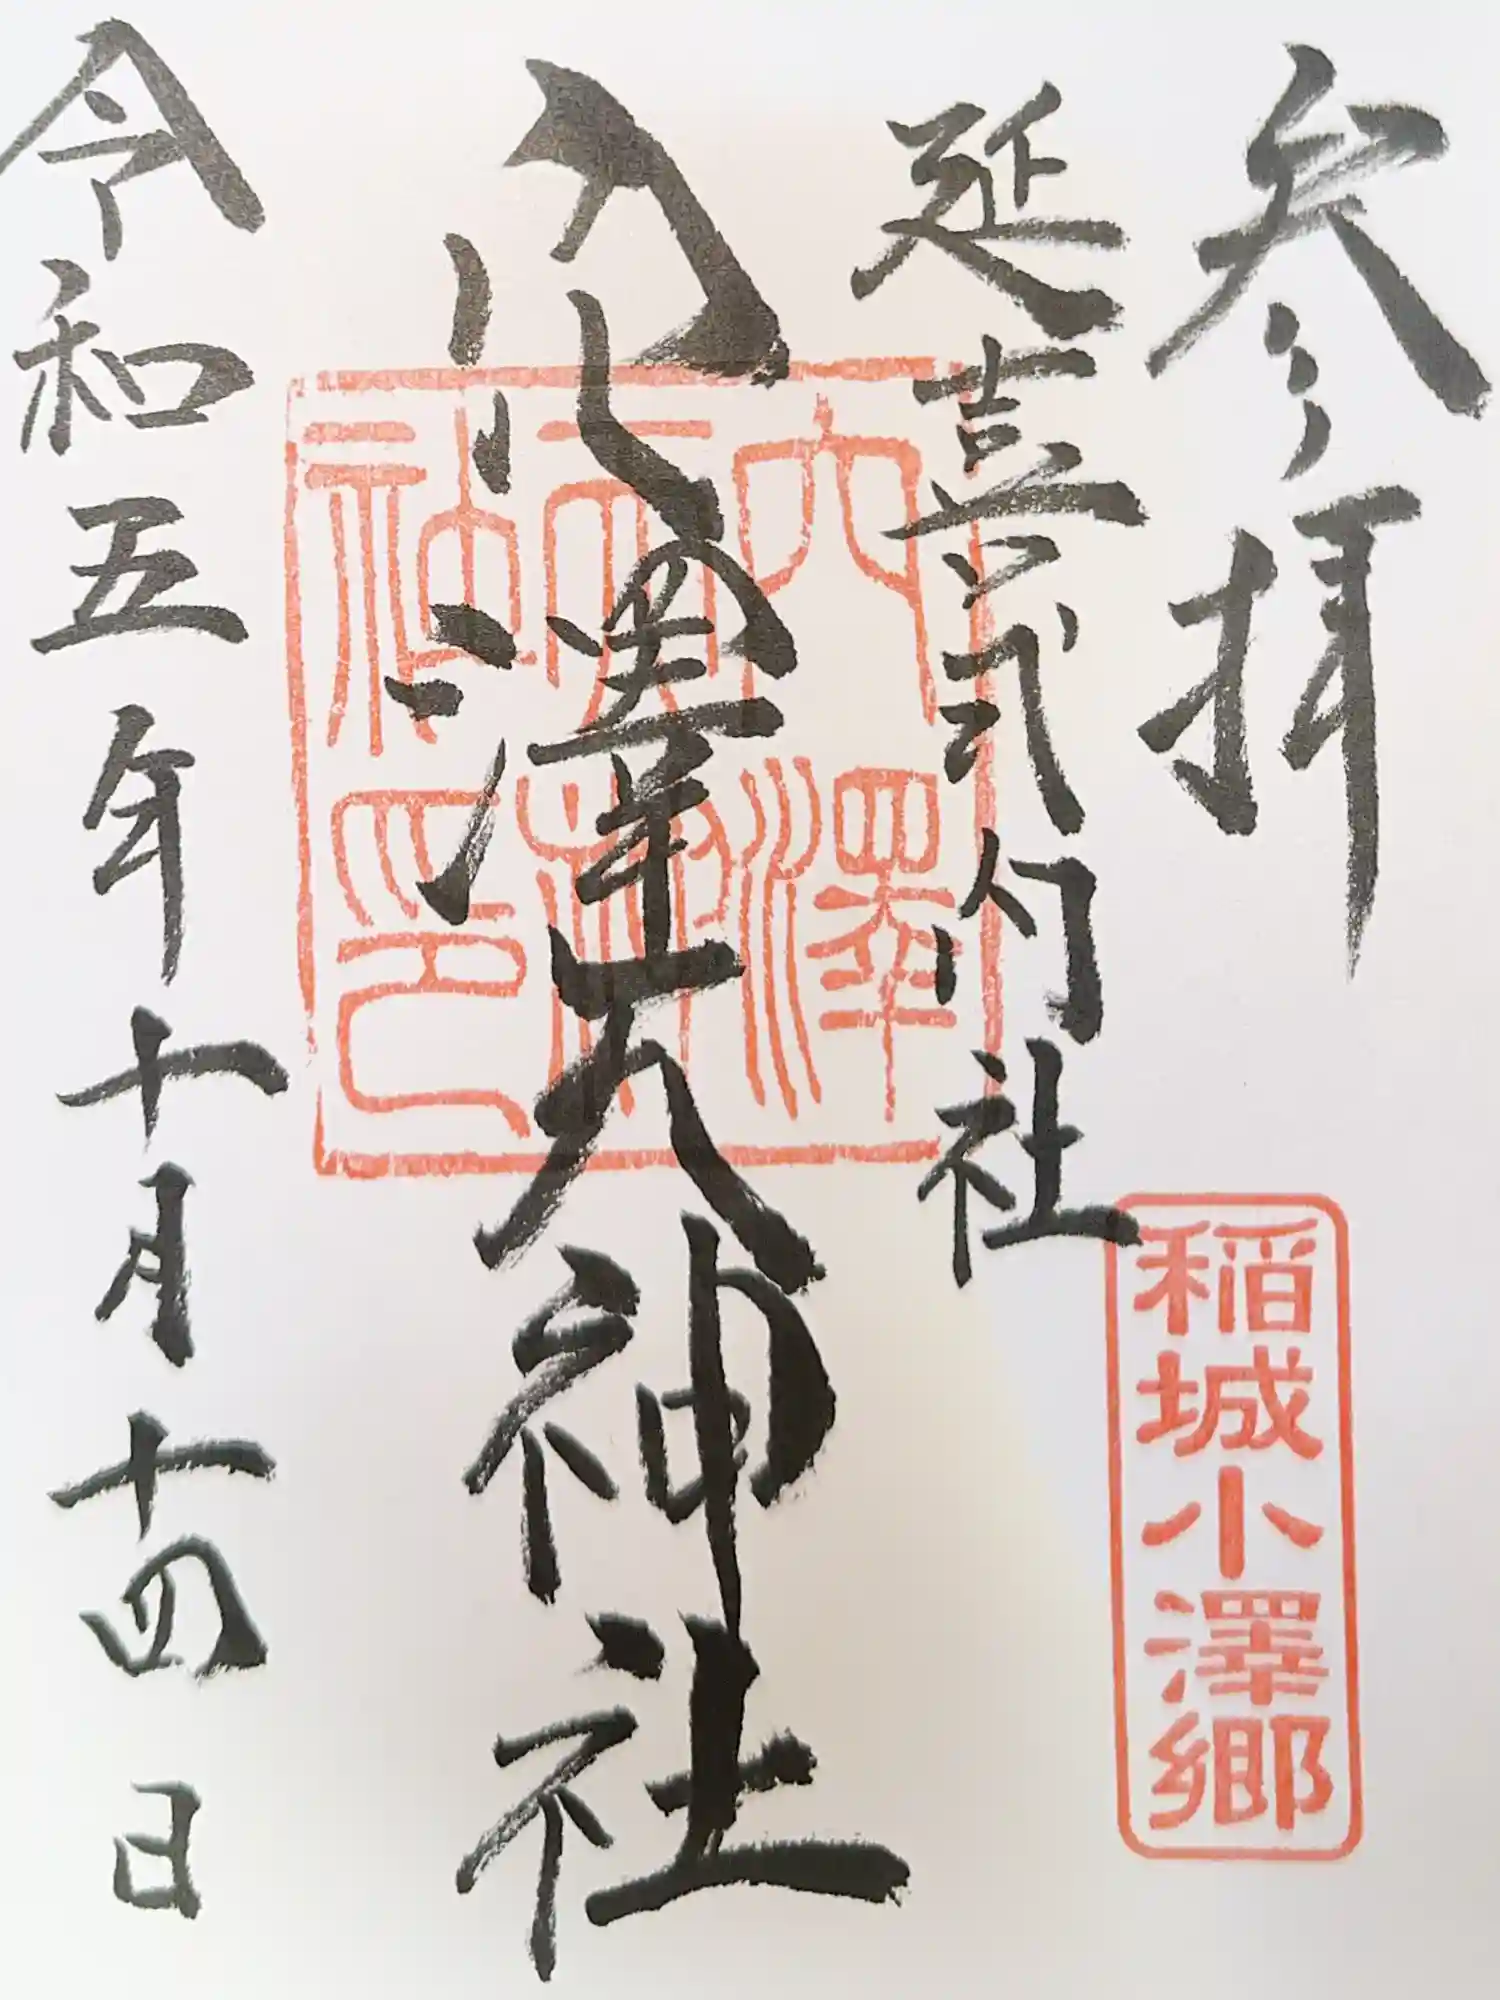 参拝
延喜式内社
稲城小澤郷
穴澤天神社
穴澤
天神
社印
令和五年十月十四日